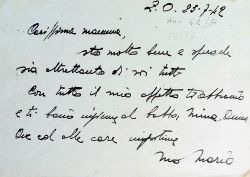 P.O. 23-7-42
Carissima mamma,
sto molto bene e spero che
sia altrettanto di voi tutti
Con tutto il mio affetto ti abbraccio
e ti bacio insieme al babbo, Nina, Anna
ed alle care
tuo Mario